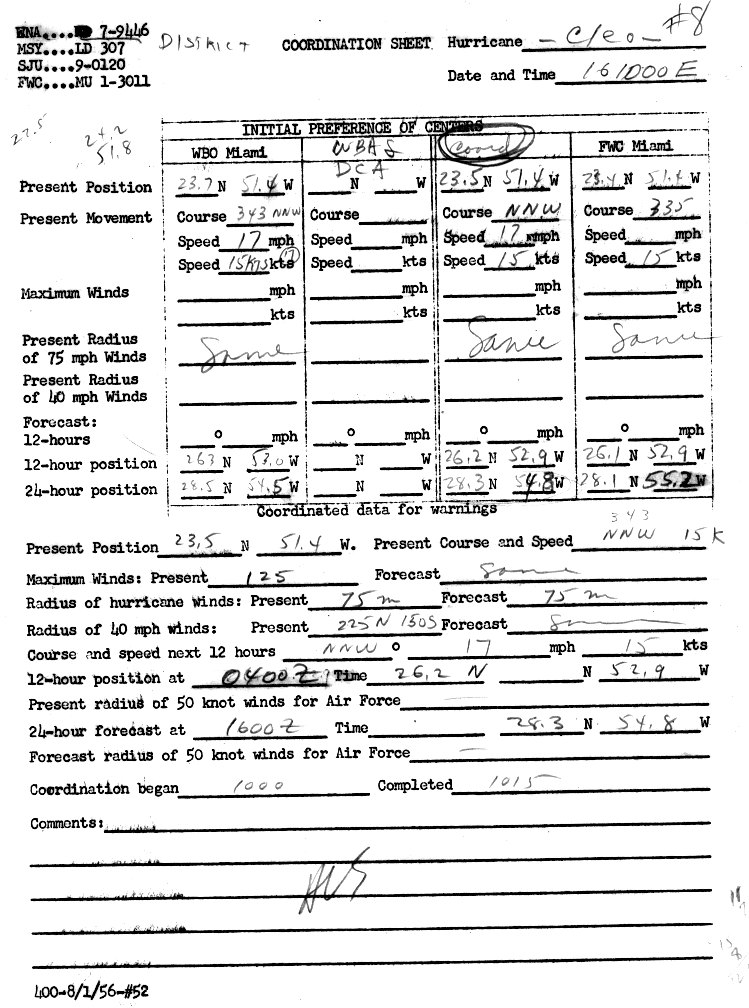 ENA.... 7-9446
MSY....LD 307
SJU....9-0120
FWC....MU 1-3011
District
COORDINATION SHEET Hurricane - Cleo - #8
Date and Time 161000E
22.5
24.2
51.8
INITIAL PREFERENCE OF CENTERS
WBO Miami WBAS DCA coord FWC Miami
Present Position 23.7 N 51.4 W N W 23.5 N 51.4 W 23.4 N 51.4 W
Present Movement Course 343 NNW Course Course NNW Course 335
Speed 17 mph Speed mph Speed 17 mph Speed mph
Speed 15 kts Speed kts Speed 15 kts Speed 15 kts
Maximum Winds mph mph mph mph
kts kts kts kts
Present Radius
of 75 mph Winds Same Same Same
Present Radius
of 40 mph Winds
Forecast:
12-hours o mph o mph o mph o mph
12-hour position 263 N 53.0 W N W 26.2 N 52.9 W 26.1 N 52.9 W
24-hour position 28.5 N 54.5 W N W 28.3 N 54.8 W 28.1 N 55.2 W
Coordinated data for warnings
343
Present Position 23.5 N 51.4 W. Present Course and Speed NNW 15 K
Maximum Winds: Present 125 Forecast Same
Radius of hurricane winds: Present 75 m Forecast 75 m
Radius of 40 mph winds: Present 225N 150S Forecast Same
Course and speed next 12 hours NNW o 17 mph 15 kts
12-hour position at 0400Z Time 26.2 N N 52.9 W
Present radius of 50 knot winds for Air Force
24-hour forecast at 1600Z Time 28.3 N 54.8 W
Forecast radius of 50 knot winds for Air Force
Coordination began 1000 Completed 1015
Comments:
400-8/1/56-#52